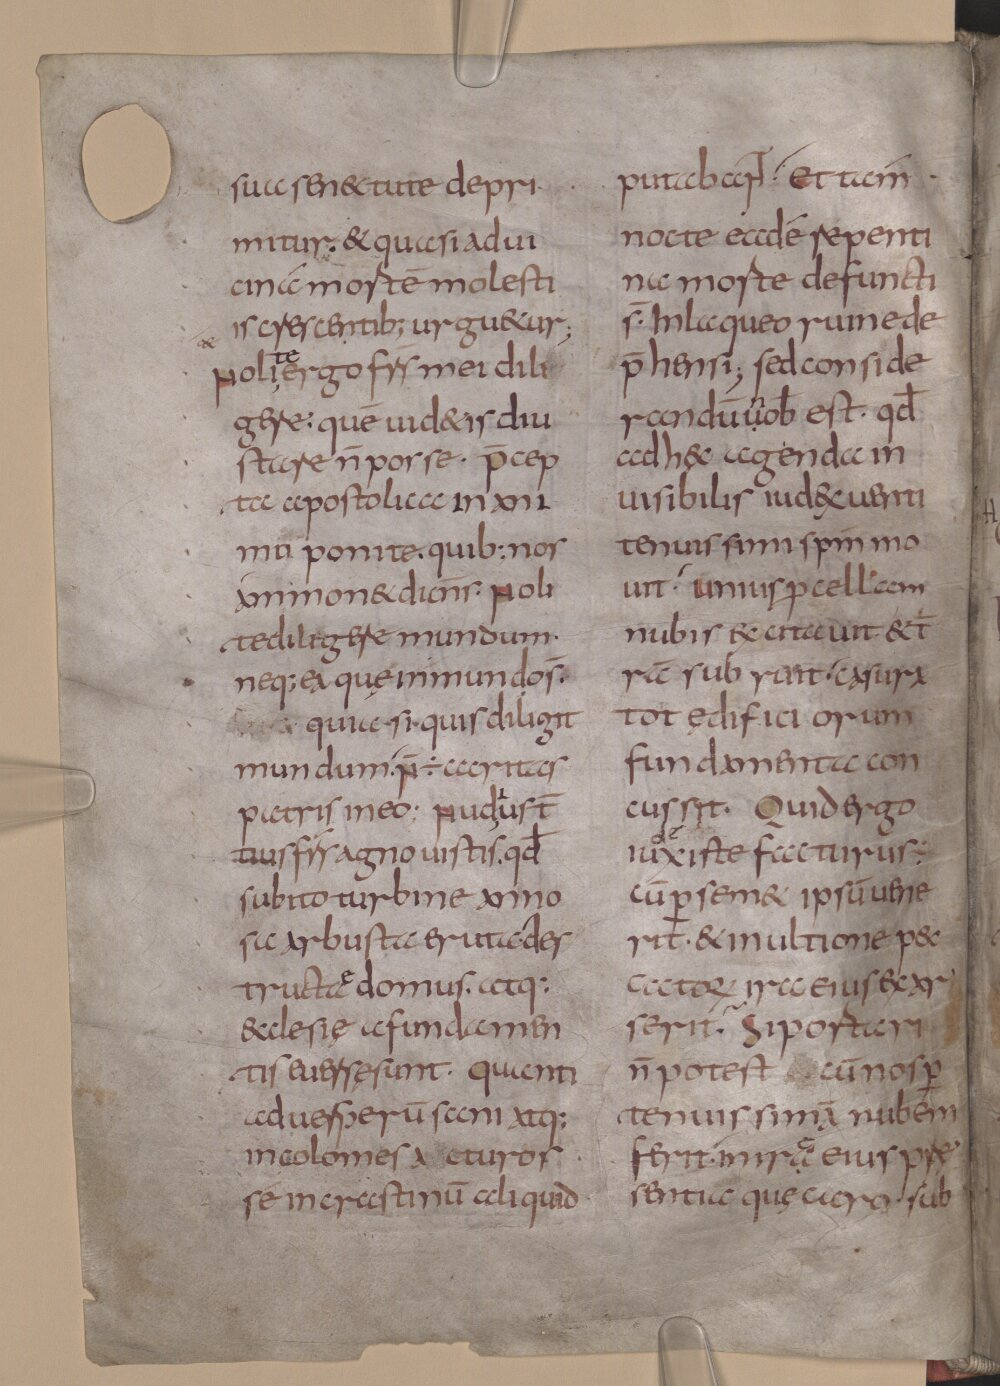 sua sen&tute depri
mitur. & quasi ad ui
cinā mortē molesti
is crescentib; urgu&ur;
Nolite ergo frs mei dili
gere. quē uid&is diu
stare n̄ posse. p̄cep
ta apostolica in ani
mū ponite. quib: nos
ammon& dicens. Noli
te diligere mundum.
neq; ea quę in mundo s̄.
quia si quis diligit
mundum. n̄ ÷ caritas
patris in eo. Nudius t̄
tius frs agnouistis. qd̄
subito turbine anno
sa arbusta eruta. des
tructe domus. atq:
&clesię a fundamen
tis euersę sunt. Quanti
ad uesperū sani atq;
incolomes a cturos
se in crastinū aliquid
putabant. Et tam
nocte eadē repenti
na morte defuncti
s̄. In laqueo ruine de
p̄hensi; sed conside
randū uob est. qd̄
ad hęc agenda in
uisibilis iud& uenti
tenuissimi spm mo
uit. unius pcellam
nubis &citauit & t̄
rā sub runt. casura
tot ędificiorum
fundamenta con
cussit. Quid ergo
iudex iste facturus:
cū p sem& ipsū uene
rit. & in ultione pec
catoꝝ ira eius &ar
serit. Si portari
n̄ potest cū nos p
tenuissimā nubem
ferit. in ira eius pre
sentia quę caro sub